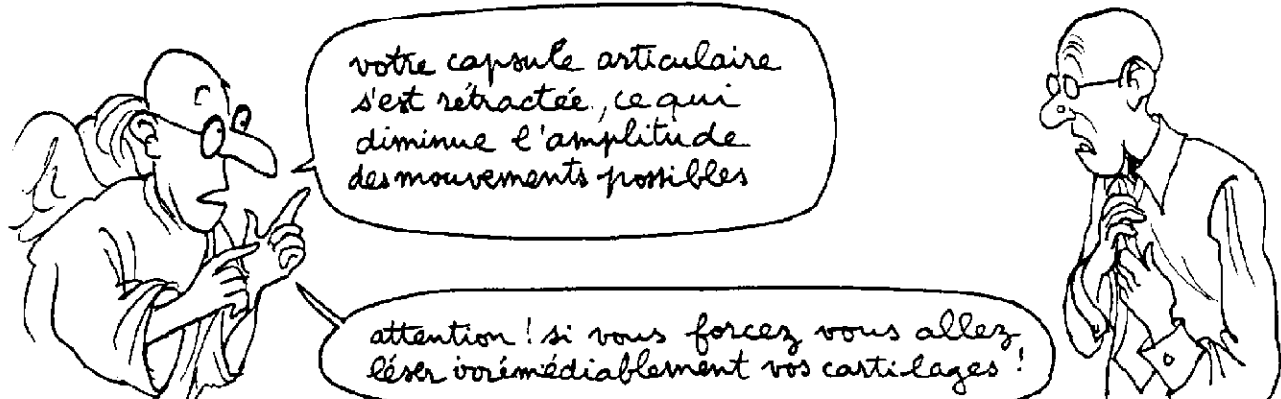 votre capsule articulaire
s'est rétractée, ce qui
diminue l'amplitude
des mouvements possibles
attention ! si vous forcez vous allez
léser irrémédiablement vos cartilages !